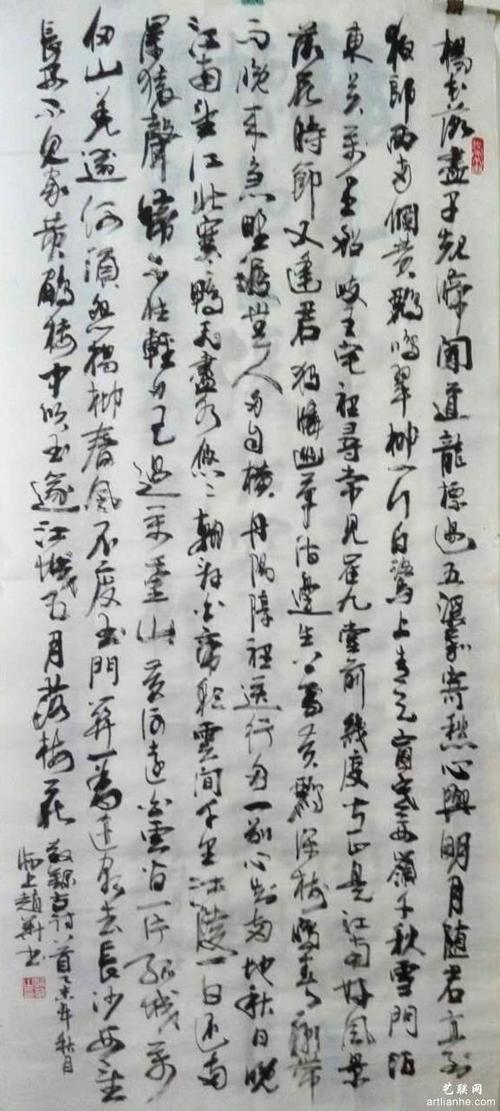 楊花落盡子規啼聞道龍標過五溪我寄愁心與明月隨君直到
夜郎西兩個黃鸝鳴翠柳一行白鷺上青天窗含西嶺千秋雪門泊
東吳萬里船岐王宅裡尋常見崔九堂前幾度聞正是江南好風景
落花時節又逢君獨憐幽草澗邊生上有黃鸝深樹鳴春潮帶
雨晚來急野渡無人舟自橫丹陽郭裡送行舟一別心知兩地秋日晚
江南望江北寒鴉飛盡水悠悠朝辭白帝彩雲間千里江陵一日還兩
岸猿聲啼不住輕舟已過萬重山黃河遠上白雲間一片孤城萬
仞山羌笛何須怨楊柳春風不度玉門關一為遷客去長沙西望
長安不見家黃鶴樓中吹玉笛江城五月落梅花
敬錄古詩八首乙未年秋月
海上趙書
艺联网
artlianhe.com